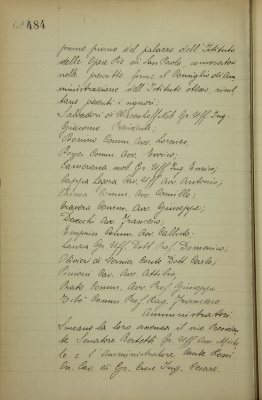 484
primo piano del palazzo dell'Istituto
delle Opere Pie di San Paolo, convocatosi
nelle prescritte forme il Consiglio di Am
ministrazione dell'Istituto stesso, risul
tano presenti i signori:
Salvadori di Wiesenhoff Nob. Gr. Uff. Ing.
Giacomo Presidente;
Comm. Avv. Lorenzo;
Comm. Avv. Enrico;
Camerana nob. Gr. Uff. Ing. Enrico;
Cappa Legora Cav. Uff. Avv. Antonio;
Comm. Avv. Camillo;
Comm. Avv. Giuseppe;
Avv. Francesco;
Comm. Avv.
Gr. Uff. Dott. Prof. Domenico;
Olivieri di Vernier Conte Dott. Carlo;
Cav. Avv. Attilio;
Prato Comm. Avv. Prof. Giuseppe
Comm. Prof. Rag. Francesco
Amministratori.
Scusano la loro assenza il vice Presiden
te Senatore Bertetti Gr. Uff. Avv. Miche
le e l'Amministratore Conte Rossi
Cav. di Gr. Croce Ing. Cesare.